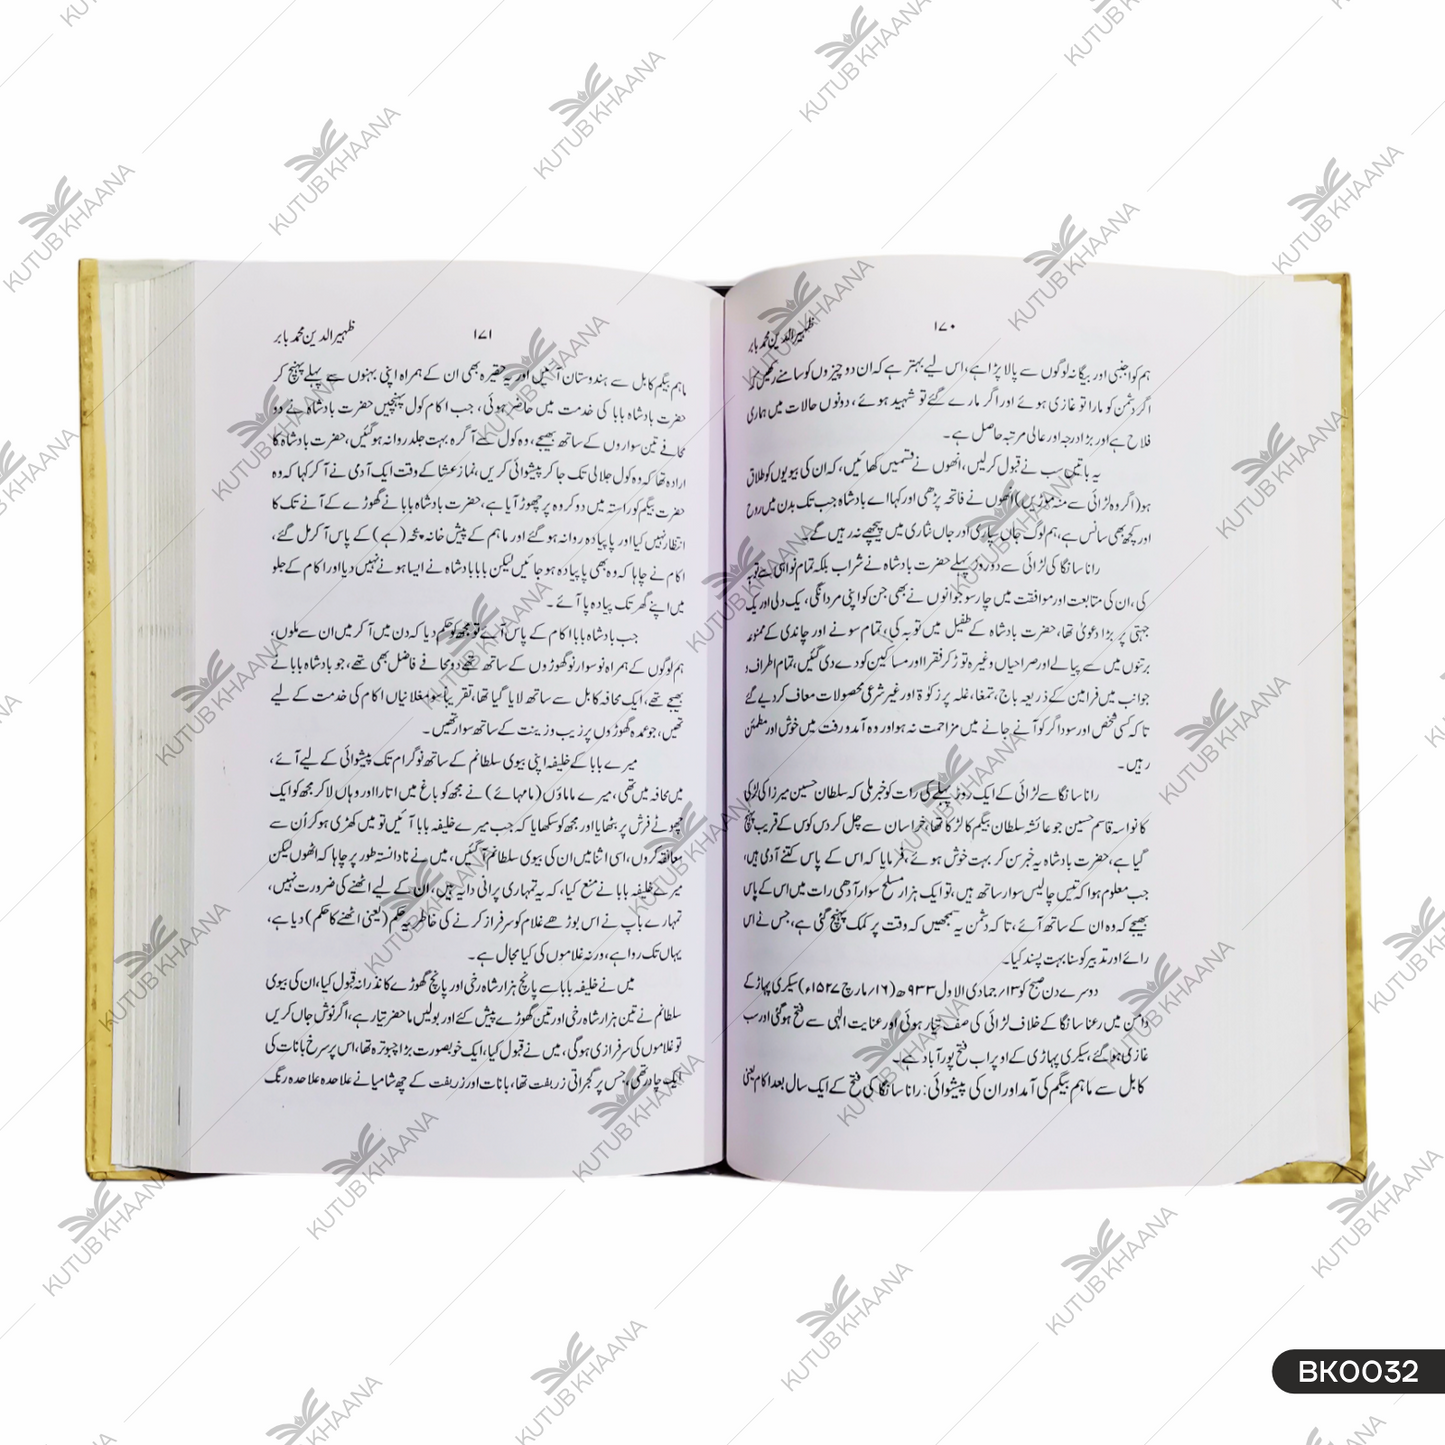 ۱۷۰
ظہیر الدین محمد بابر
ہم کو اجنبی اور بیگانہ لوگوں سے پالا پڑا ہے، اس لیے بہتر ہے کہ ان دو چیزوں کو سامنے رکھیں کہ
اگر دشمن کو مارا تو غازی ہوئے اور اگر مارے گئے تو شہید ہوئے، دونوں حالات میں ہماری
فلاح ہے اور بڑا درجہ اور عالی مرتبہ حاصل ہے۔
یہ باتیں سب نے قبول کر لیں، انھوں نے قسمیں کھائیں، کہ ان کی بیویوں کو طلاق
ہو (اگر وہ لڑائی سے منہ موڑیں) انھوں نے فاتحہ پڑھی اور کہا اے بادشاہ جب تک بدن میں روح
اور کچھ بھی سانس ہے، ہم لوگ جاں سپاری اور جاں نثاری میں پیچھے نہ رہیں گے۔
رانا سانگا کی لڑائی سے دو روز پہلے حضرت بادشاہ نے شراب بلکہ تمام نواہی سے توبہ
کی، ان کی متابعت اور موافقت میں چار سو جوانوں نے بھی جن کو اپنی مردانگی، یک دلی اور یک
جہتی پر بڑا دعویٰ تھا، حضرت بادشاہ کے طفیل میں توبہ کی، تمام سونے اور چاندی کے ممنوعہ
برتنوں میں سے پیالے اور صراحیاں وغیرہ توڑ کر فقرا اور مساکین کو دے دی گئیں، تمام اطراف و
جوانب میں فرامین کے ذریعہ باج، تمغا، غلہ پر زکوٰۃ اور غیر شرعی محصولات معاف کر دیے گئے
تاکہ کسی شخص اور سوداگر کو آنے جانے میں مزاحمت نہ ہو اور وہ آمد و رفت میں خوش اور مطمئن
رہیں۔
رانا سانگا سے لڑائی کے ایک روز پہلے کی رات کو خبر ملی کہ سلطان حسین میرزا کی لڑکی
کا نواسہ قاسم حسین جو عائشہ سلطان بیگم کا لڑکا تھا، خراسان سے چل کر دس کوس کے قریب پہنچ
گیا ہے، حضرت بادشاہ یہ خبر سن کر بہت خوش ہوئے، فرمایا کہ اس کے پاس کتنے آدمی ہیں،
جب معلوم ہوا کہ تیس چالیس سوار ساتھ ہیں، تو ایک ہزار مسلح سوار آدھی رات میں اس کے پاس
بھیجے کہ وہ ان کے ساتھ آئے، تاکہ دشمن یہ سمجھیں کہ وقت پر کمک پہنچ گئی ہے، جس نے اس
رائے اور تدبیر کو سنا بہت پسند کیا۔
دوسرے دن صبح کو ۱۳/ جمادی الاول ۹۳۳ھ (۱۶/ مارچ ۱۵۲۷ء) سیکری پہاڑ کے
دامن میں رعنا سانگا کے خلاف لڑائی کی صف تیار ہوئی اور عنایت الٰہی سے فتح ہوگئی اور سب
غازی ہو گئے، سیکری پہاڑی کے اوپر اب فتح پور آباد ہے۔
کابل سے ماہم بیگم کی آمد اور ان کی پیشوائی: رانا سانگا کی فتح کے ایک سال بعد اکام یعنی
۱۷۱
ظہیر الدین محمد بابر
ماہم بیگم کابل سے ہندوستان آئیں اور یہ حقیرہ بھی ان کے ہمراہ اپنی بہنوں سے پہلے پہنچ کر
حضرت بادشاہ بابا کی خدمت میں حاضر ہوئی، جب اکام کول پہنچیں حضرت بادشاہ نے دو
محافے تین سواروں کے ساتھ بھیجے، وہ کول سے آگرہ بہت جلد روانہ ہوگئیں، حضرت بادشاہ کا
ارادہ تھا کہ وہ کول جلالی تک جا کر پیشوائی کریں، نماز عشا کے وقت ایک آدمی نے آکر کہا کہ وہ
حضرت بیگم کو راستہ میں دو کروہ پر چھوڑ آیا ہے، حضرت بادشاہ بابا نے گھوڑے کے آنے تک کا
انتظار نہیں کیا اور پا پیادہ روانہ ہو گئے اور ماہم کے پیش خانہ (ہے) کے پاس آکر مل گئے،
اکام نے چاہا کہ وہ بھی پا پیادہ ہو جائیں لیکن بابا بادشاہ نے ایسا ہونے نہیں دیا اور اکام کے جلو
میں اپنے گھر تک پیادہ پا آئے۔
جب بادشاہ بابا اکام کے پاس آئے تو مجھ کو حکم دیا کہ دن میں آکر میں ان سے ملوں،
ہم لوگوں کے ہمراہ نو سوار نو گھوڑوں کے ساتھ تھے دو محافے فاضل بھی تھے، جو بادشاہ بابا نے
بھیجے تھے، ایک محافہ کابل سے ساتھ لایا گیا تھا، تقریباً سو مغلانیاں اکام کی خدمت کے لیے
تھیں، جو عمدہ گھوڑوں پر زیب و زینت کے ساتھ سوار تھیں۔
میرے بابا کے خلیفہ اپنی بیوی سلطانم کے ساتھ نوگرام تک پیشوائی کے لیے آئے،
میں محافہ میں تھی، میرے ماماؤں (ماماہائے) نے مجھ کو باغ میں اتارا اور وہاں لا کر مجھ کو ایک
چھوٹے فرش پر بٹھایا اور مجھ کو سکھایا کہ جب میرے خلیفہ بابا آئیں تو میں کھڑی ہو کر اُن سے
معانقہ کروں، اسی اثنا میں ان کی بیوی سلطانم آگئیں، میں نے نادانستہ طور پر چاہا کہ اٹھوں لیکن
میرے خلیفہ بابا نے منع کیا، کہ یہ تمہاری پرانی دایہ ہیں، ان کے لیے اٹھنے کی ضرورت نہیں،
تمہارے باپ نے اس بوڑھے غلام کو سرفراز کرنے کی خاطر یہ حکم (یعنی اٹھنے کا حکم) دیا ہے،
یہاں تک روا ہے، ورنہ غلاموں کی کیا مجال ہے۔
میں نے خلیفہ بابا سے پانچ ہزار شاہ رخی اور پانچ گھوڑے کا نذرانہ قبول کیا، ان کی بیوی
سلطانم نے تین ہزار شاہ رخی اور تین گھوڑے پیش کئے اور بولیں ماحضر تیار ہے، اگر نوش جاں کریں
تو غلاموں کی سرفرازی ہوگی، میں نے قبول کیا، ایک خوبصورت بڑا چبوترہ تھا، اس پر سرخ بانات کی
ایک چادر تھی، جس پر گجراتی زربفت تھا، بانات اور زربفت کے چھ شامیانے علاحدہ علاحدہ رنگ
KUTUB KHAANA
BK0032